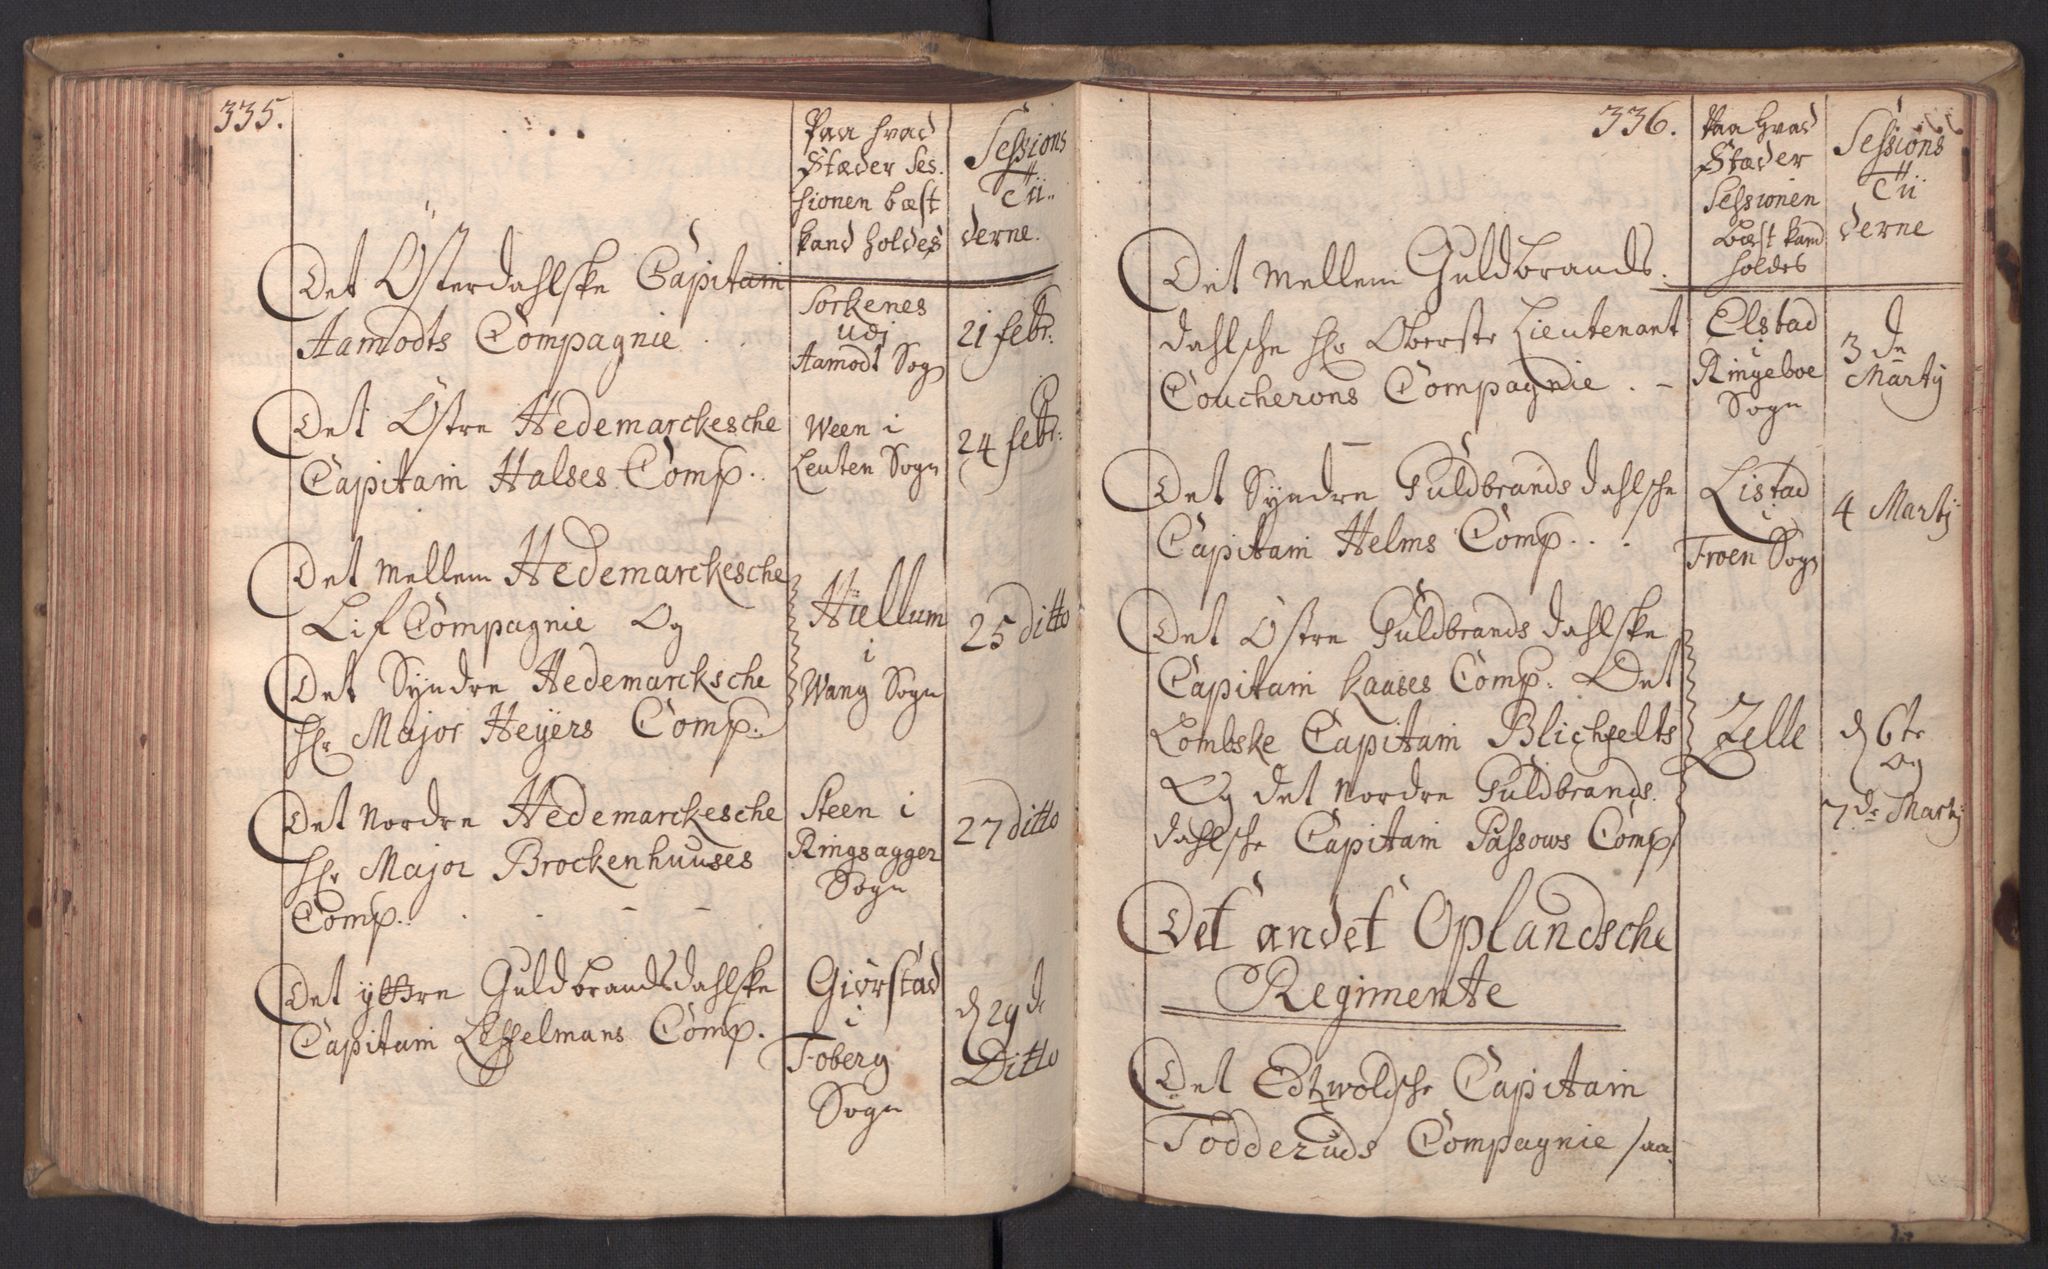 335.
Paa hvad
Stæder Ses-
sionen bæst
kand holdes
Sessions
Tii-
derne.
Det Østerdahlske Capitain
Aamodts Compagnie
Sorkenes
udj
Aamodt Sogn
21 febr:
Det Østre Hedemarckesche
Capitain Halses Comp.
Ween i
Leuten Sogn
24 febr:
Det mellem Hedemarckesche
Lif Compagnie Og
Det Syndre Hedemarcksche
Hr Major Heÿers Comp.
Hiellum
i
Wang Sogn
25 ditto
Det Nordre Hedemarckesche
Hr Major Brockenhuuses
Comp.
Steen i
Ringsagger
Sogn
27 ditto
Det ÿttre Guldbrandsdahlske
Capitain Lesselmans Comp.
Giørstad
i
Foberg
Sogn
d 29 de
Ditto
336.
Paa hvad
Stæder
Sessionen
Bæst kand
holdes
Sessions
Tii
derne
Det mellem Guldbrands-
dahlsche Hr Oberste Lieutenant
Coucherons Compagnie . -
Elstad
i
Ringeboe
Sogn
3 de
Martij
Det Syndre Guldbrandsdahlsche
Capitain Helms Comp. . .
Listad
i
Froen Sogn
4 Martij
Det Østre Guldbrandsdahlske
Capitain Kaases Comp: Det
Lombske Capitain Blichfelts
Og det Nordre Guldbrands-
dahlsche Capitain Passows Comp.
Zelle
d 6te
Og
7de Martij
Det andet Oplandsche
Regimente
Det Edtzwoldsche Capitain
Todderuds Compagnie /aa